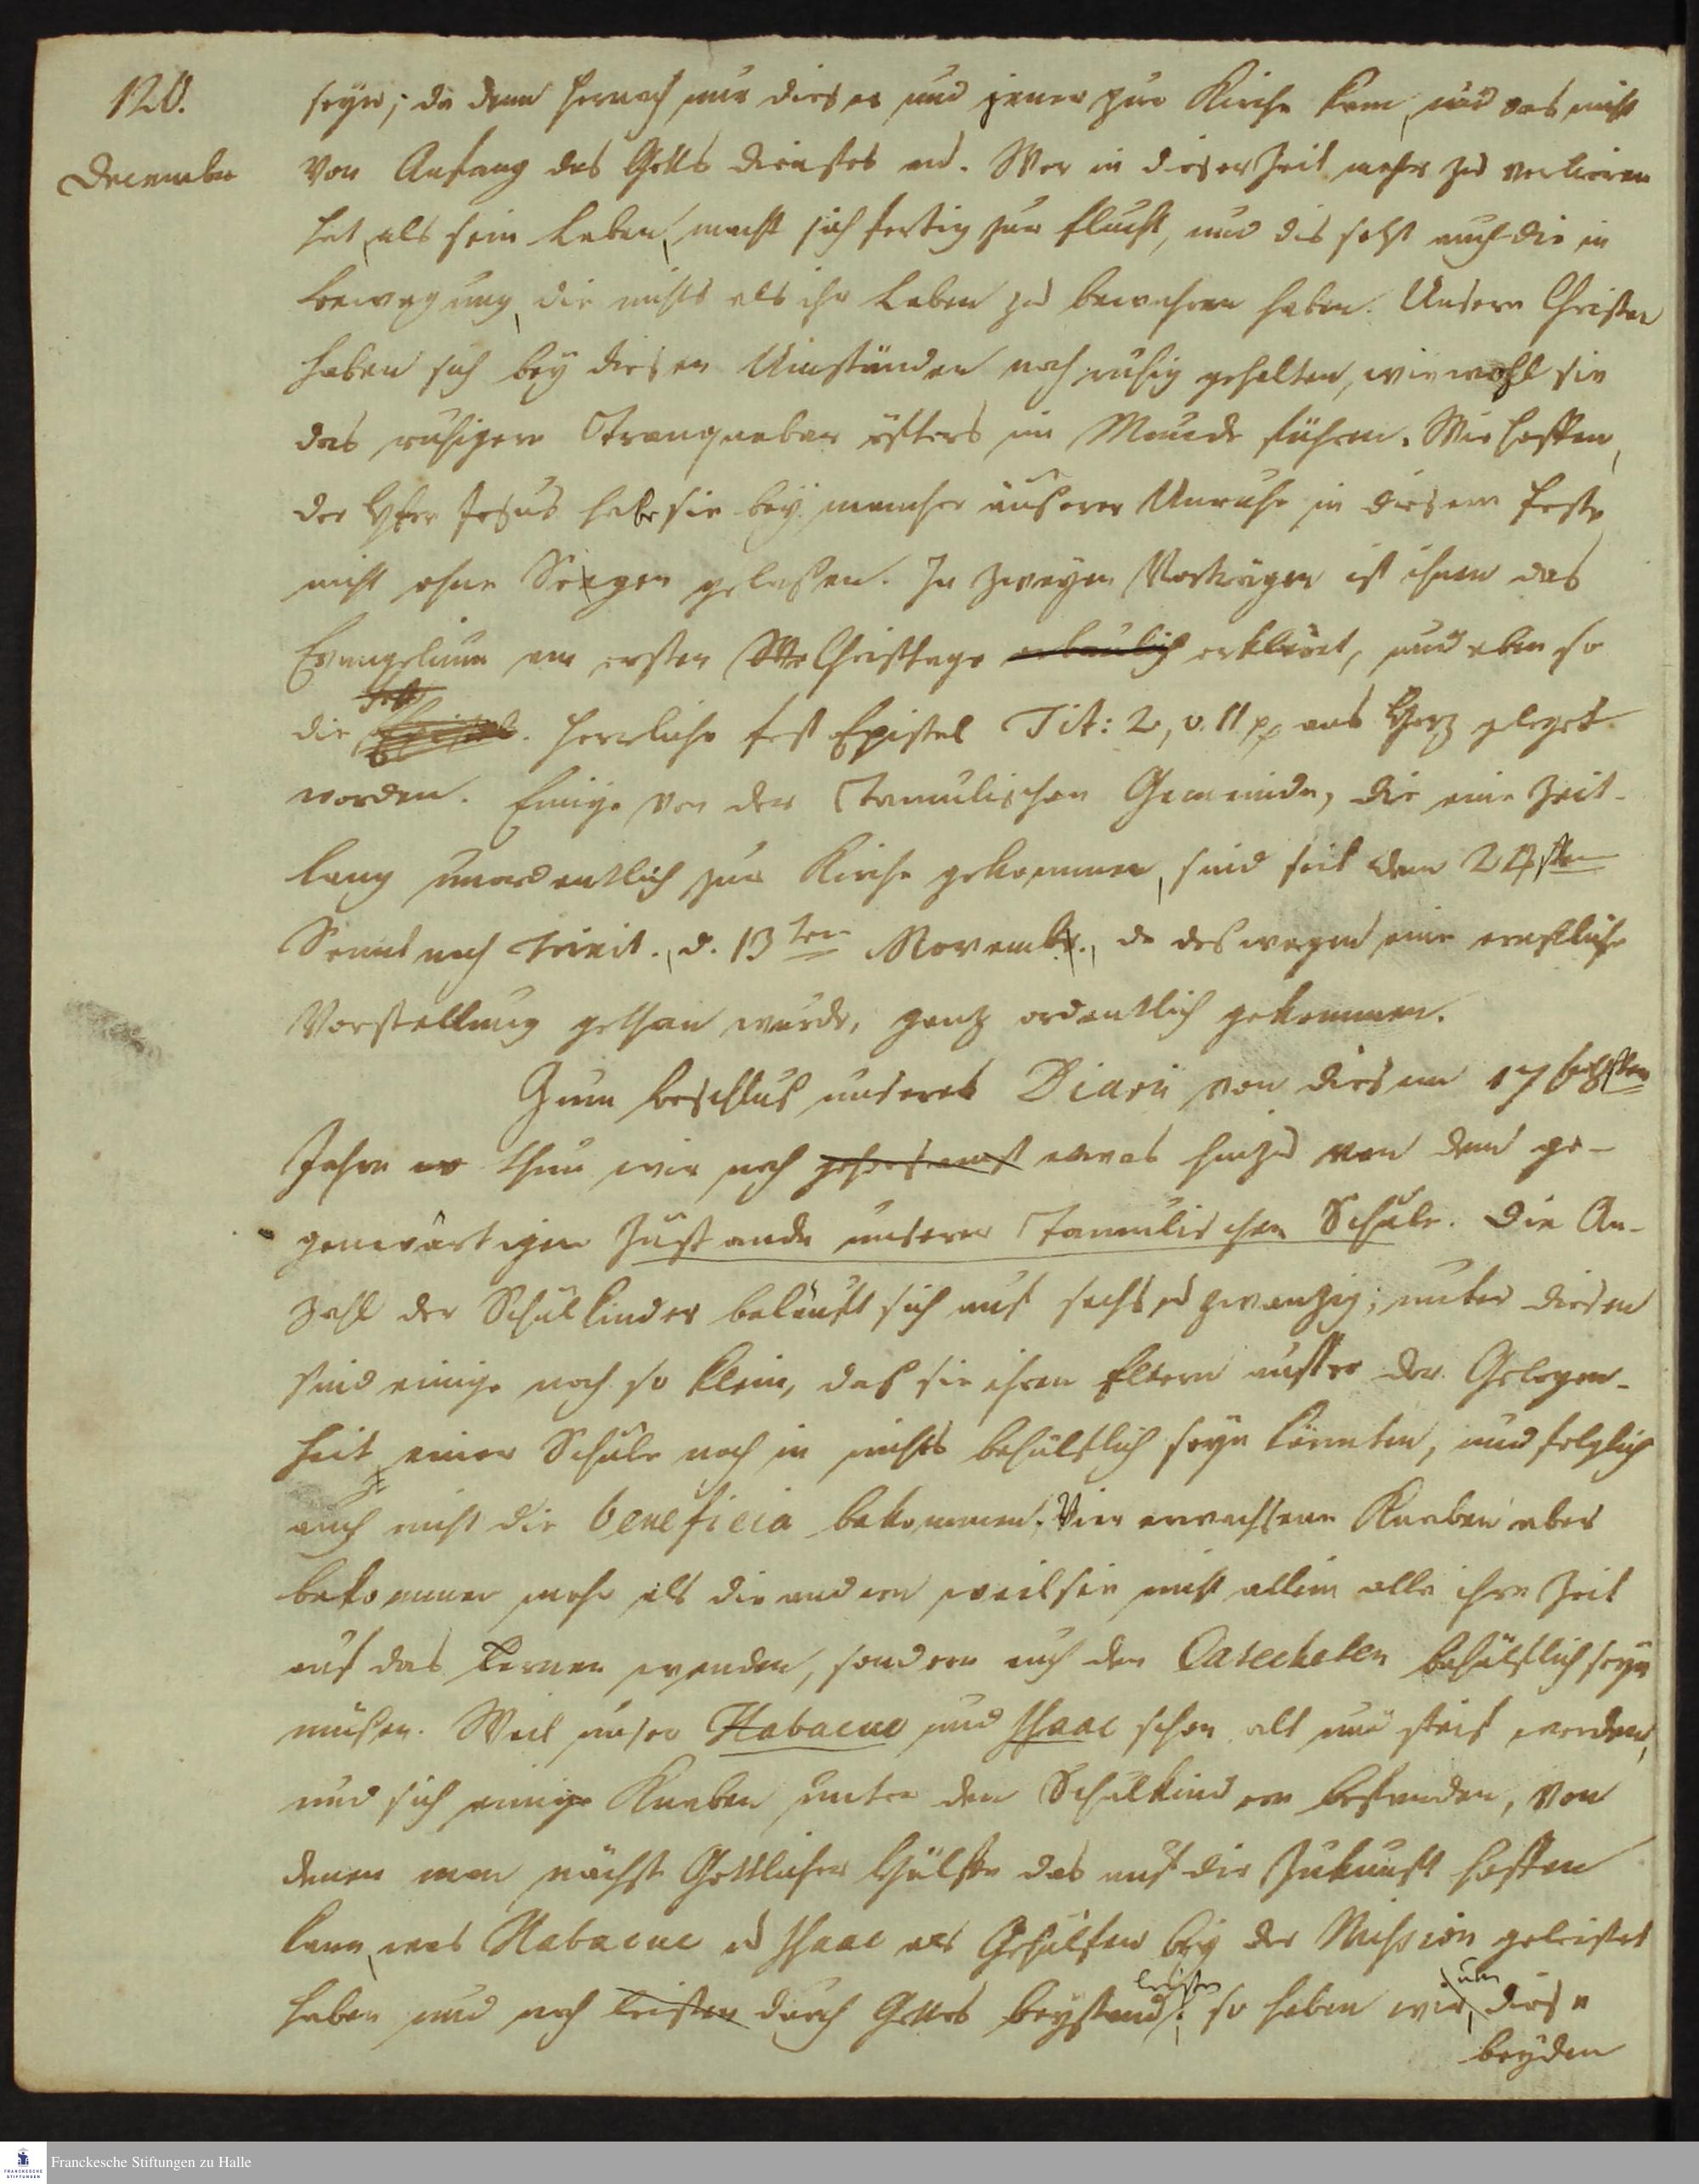 120.
December
seyn; da denn hernach nur dieser und jener zur Kirche kam, und das nicht
von Anfang des Gottesdienstes an. Wer in dieser Zeit mehr zu verlieren
hat, als sein Leben, macht sich fertig zur Flucht, und dis setzt auch die in
Bewegung, die nichts als ihr Leben zu bewahren haben. Unsere Christen
haben sich bey diesen Umständen noch ruhig gehalten, wiewohl sie
das ruhigere Tranquebar öfters im Munde führen. Wir hoffen,
der Herr Jesus habe sie bey mancher äuserer Unruhe in diesem Feste
nicht ohne Seegen gelassen. In zweyen Vorträgen ist ihnen das
Evangelium am ersten Christtage erbaulich erkläret, und eben so
die Epistel. herrliche Fest Epistel Tit: 2, v. 11 pp ans Herz geleget
worden. Einige von der Tamulischen Gemeinde, die eine Zeit-
lang unordentlich zur Kirche gekommen, sind seit dem 24sten
Sonnt nach Trinit., d. 13ten Novembr., da deswegen eine ernstliche
Vorstellung gethan wurde, ganz ordentlich gekommen.
Zum Beschluß unseres Diarii von diesem
Jahre thun wir noch gehorsamst etwas hinzu von dem ge-
genwärtigen Zustande unserer Tamulischen Schule. Die An-
zahl der Schulkinder beläuft sich auf sechs u zwanzig; unter diesen
sind einige noch so klein, daß sie ihren Eltern ausser der Gelegen-
heit einer Schule noch in nichts behülflich seyn könnten, und folglich
auch nicht die beneficia bekommen. Vier erwachsene Knaben aber
bekommen mehr als die andern weil sie nicht allein alle ihre Zeit
auf das Lernen wenden, sondern auch den Catecheten behülflich seyn
müßen. Weil unser Habacuc und Isaac schon alt und steif werden,
und sich einige Knaben unter den Schulkindern befanden, von
denen man nächst Göttlicher Hülfe das auf die Zukunft hoffen
kann, was Habacuc u Isaac als Gehülfen bey der Mission geleistet
haben und noch leisten durch Gottes Beystand leisten; so haben wir, nun diese
beyden
Franckesche Stiftungen zu Halle